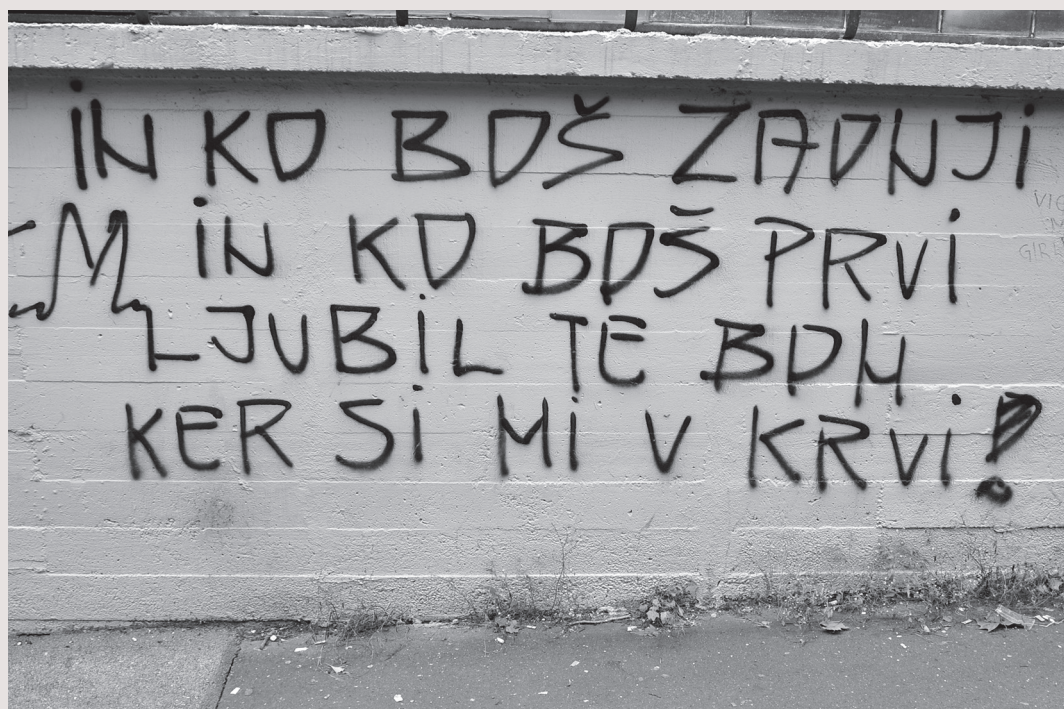 IN KO BOŠ ZADNJI
IN KO BOŠ PRVI
LJUBIL TE BOM
KER SI MI V KRVI!